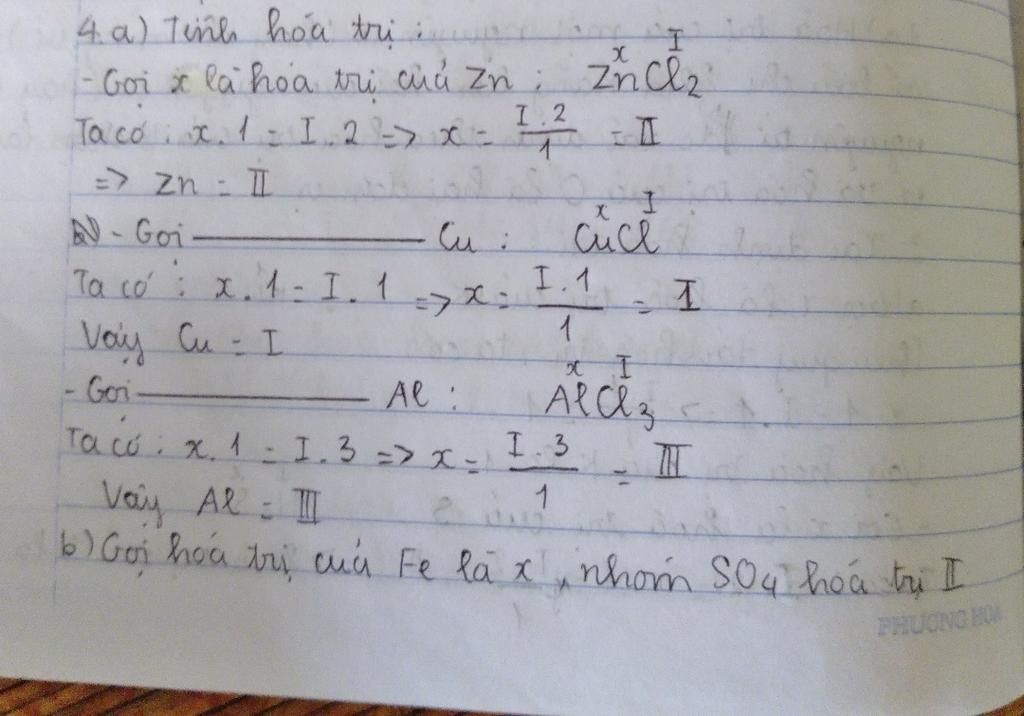 4.a) Tính hóa trị :
- Gọi x là hóa trị của Zn : x I ZnCl₂
Ta có : x.1 = I.2 => x = I.2/1 = II
=> Zn = II
- Gọi ——— Cu : x I CuCl
Ta có : x.1 = I.1 => x = I.1/1 = I
Vậy Cu = I
- Gọi ——— Al : x I AlCl₃
Ta có : x.1 = I.3 => x = I.3/1 = III
Vậy Al = III
b) Gọi hóa trị của Fe là x, nhóm SO₄ hóa trị II
PHUONG HOA